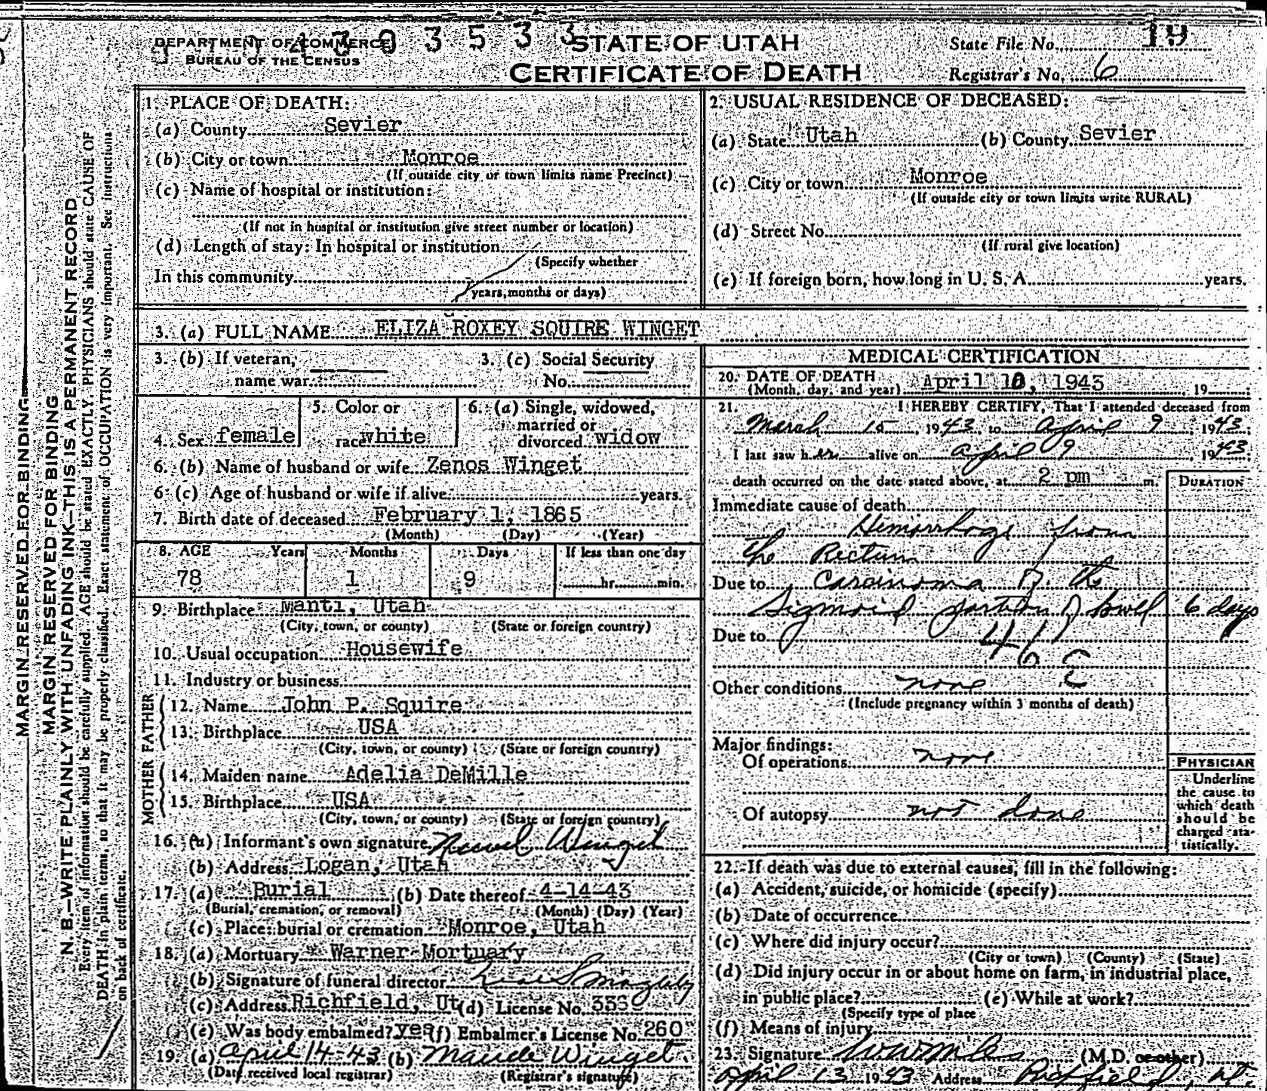 DEPARTMENT OF COMMERCE
BUREAU OF THE CENSUS
STATE OF UTAH
CERTIFICATE OF DEATH
State File No. 19
Registrar's No. 6
MARGIN RESERVED FOR BINDING
MARGIN RESERVED FOR BINDING
N. B.—WRITE PLAINLY WITH UNFADING INK—THIS IS A PERMANENT RECORD
Every item of information should be carefully supplied. AGE should be stated EXACTLY. PHYSICIANS should state CAUSE OF
DEATH in plain terms, so that it may be properly classified. Exact statement of OCCUPATION is very important. See instructions
on back of certificate.
1. PLACE OF DEATH:
(a) County Sevier
(b) City or town Monroe
(If outside city or town limits name Precinct)
(c) Name of hospital or institution:
(If not in hospital or institution give street number or location)
(d) Length of stay: In hospital or institution
(Specify whether
In this community
years, months or days)
2. USUAL RESIDENCE OF DECEASED:
(a) State Utah (b) County Sevier
(c) City or town Monroe
(If outside city or town limits write RURAL)
(d) Street No.
(If rural give location)
(e) If foreign born, how long in U. S. A. years.
3. (a) FULL NAME ELIZA ROXEY SQUIRE WINGET
3. (b) If veteran, name war
3. (c) Social Security No.
4. Sex female
5. Color or race white
6. (a) Single, widowed, married or divorced widow
6. (b) Name of husband or wife Zenos Winget
6 (c) Age of husband or wife if alive years.
7. Birth date of deceased February 1, 1865
(Month) (Day) (Year)
8. AGE Years Months Days If less than one day
78 1 9 hr. min.
9. Birthplace Manti, Utah
(City, town, or county) (State or foreign country)
10. Usual occupation Housewife
11. Industry or business
FATHER
12. Name John P. Squire
13. Birthplace USA
(City, town, or county) (State or foreign country)
MOTHER
14. Maiden name Adelia DeMille
15. Birthplace USA
(City, town, or county) (State or foreign country)
16. (a) Informant's own signature Winget
(b) Address Logan, Utah
17. (a) Burial (b) Date thereof 4-14-43
(Burial, cremation, or removal) (Month) (Day) (Year)
(c) Place: burial or cremation Monroe, Utah
18. (a) Mortuary Warner Mortuary
(b) Signature of funeral director
(c) Address Richfield, Ut (d) License No. 333
(e) Was body embalmed? yes (f) Embalmer's License No. 260
19. (a) April 14-43 (b) Maude Winget
(Date received local registrar) (Registrar's signature)
MEDICAL CERTIFICATION
20. DATE OF DEATH
(Month, day, and year) April 10, 1943 19
21. I HEREBY CERTIFY, That I attended deceased from
March 15, 1943 to April 9, 1943.
I last saw her alive on April 9 1943.
death occurred on the date stated above, at 2 pm m.
DURATION
Immediate cause of death
Hemorrhage from
the Rectum
Due to Carcinoma of the
Sigmoid portion of bowel 6 days
Due to
46 E
Other conditions none
(Include pregnancy within 3 months of death)
Major findings:
Of operations none
Of autopsy not done
PHYSICIAN
Underline
the cause to
which death
should be
charged sta-
tistically.
22. If death was due to external causes, fill in the following:
(a) Accident, suicide, or homicide (specify)
(b) Date of occurrence
(c) Where did injury occur?
(City or town) (County) (State)
(d) Did injury occur in or about home on farm, in industrial place,
in public place? (e) While at work?
(Specify type of place
(f) Means of injury
23. Signature (M.D. or other)
April 13 1943 Address Richfield, Ut.